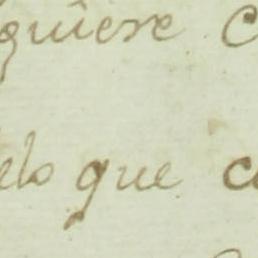 quiere C
elo que c